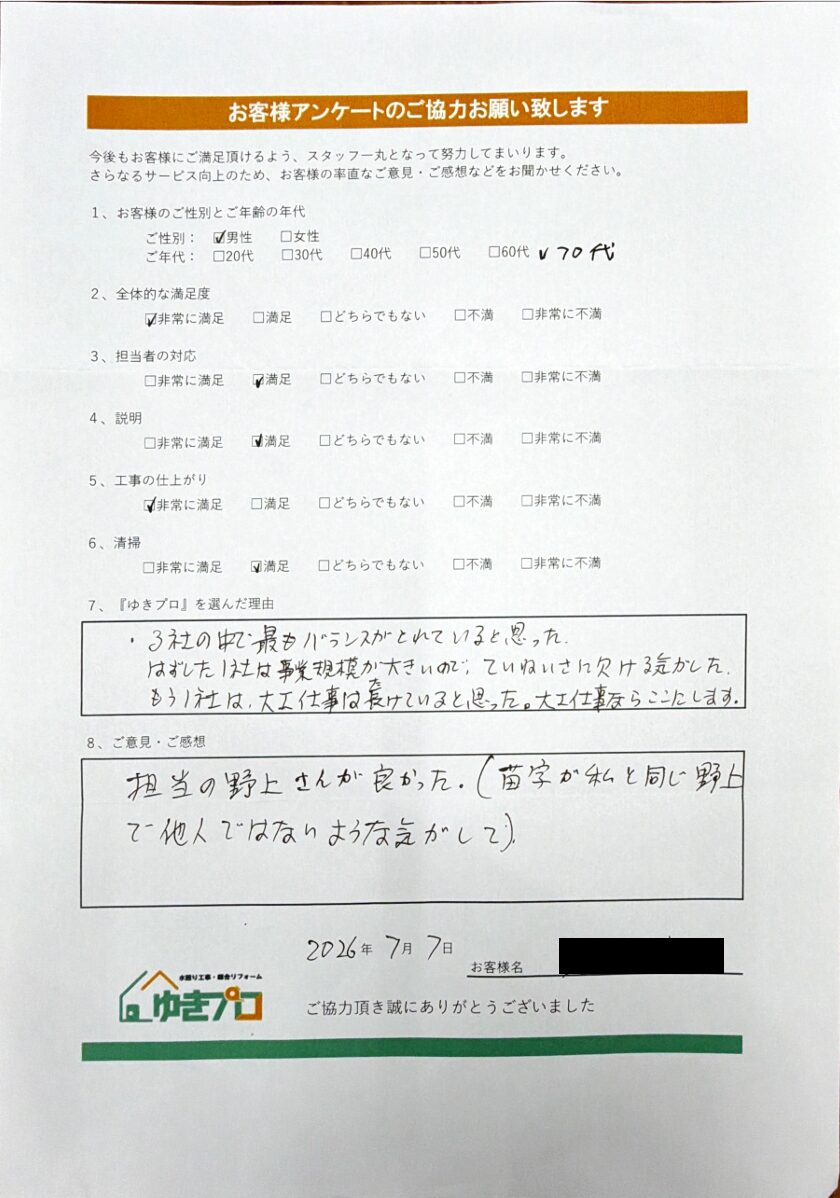 お客様アンケートのご協力お願い致します
今後もお客様にご満足頂けるよう、スタッフ一丸となって努力してまいります。
さらなるサービス向上のため、お客様の率直なご意見・ご感想などをお聞かせください。
1、お客様のご性別とご年齢の年代
ご性別： ☑男性 □女性
ご年代： □20代 □30代 □40代 □50代 □60代 ✓70代
2、全体的な満足度
☑非常に満足 □満足 □どちらでもない □不満 □非常に不満
3、担当者の対応
□非常に満足 ☑満足 □どちらでもない □不満 □非常に不満
4、説明
□非常に満足 ☑満足 □どちらでもない □不満 □非常に不満
5、工事の仕上がり
☑非常に満足 □満足 □どちらでもない □不満 □非常に不満
6、清掃
□非常に満足 ☑満足 □どちらでもない □不満 □非常に不満
7、『ゆきプロ』を選んだ理由
・3社の中で最もバランスがとれていると思った.
はずした1社は事業規模が大きいので, ていねいさに欠ける気がした.
もう1社は, 大工仕事は長けていると思った。大工仕事ならここにします.
8、ご意見・ご感想
担当の野上さんが良かった.(苗字が私と同じ野上
で他人ではないような気がして).
2026年 7月 7日
お客様名
水廻り工事・総合リフォーム
ゆきプロ
ご協力頂き誠にありがとうございました